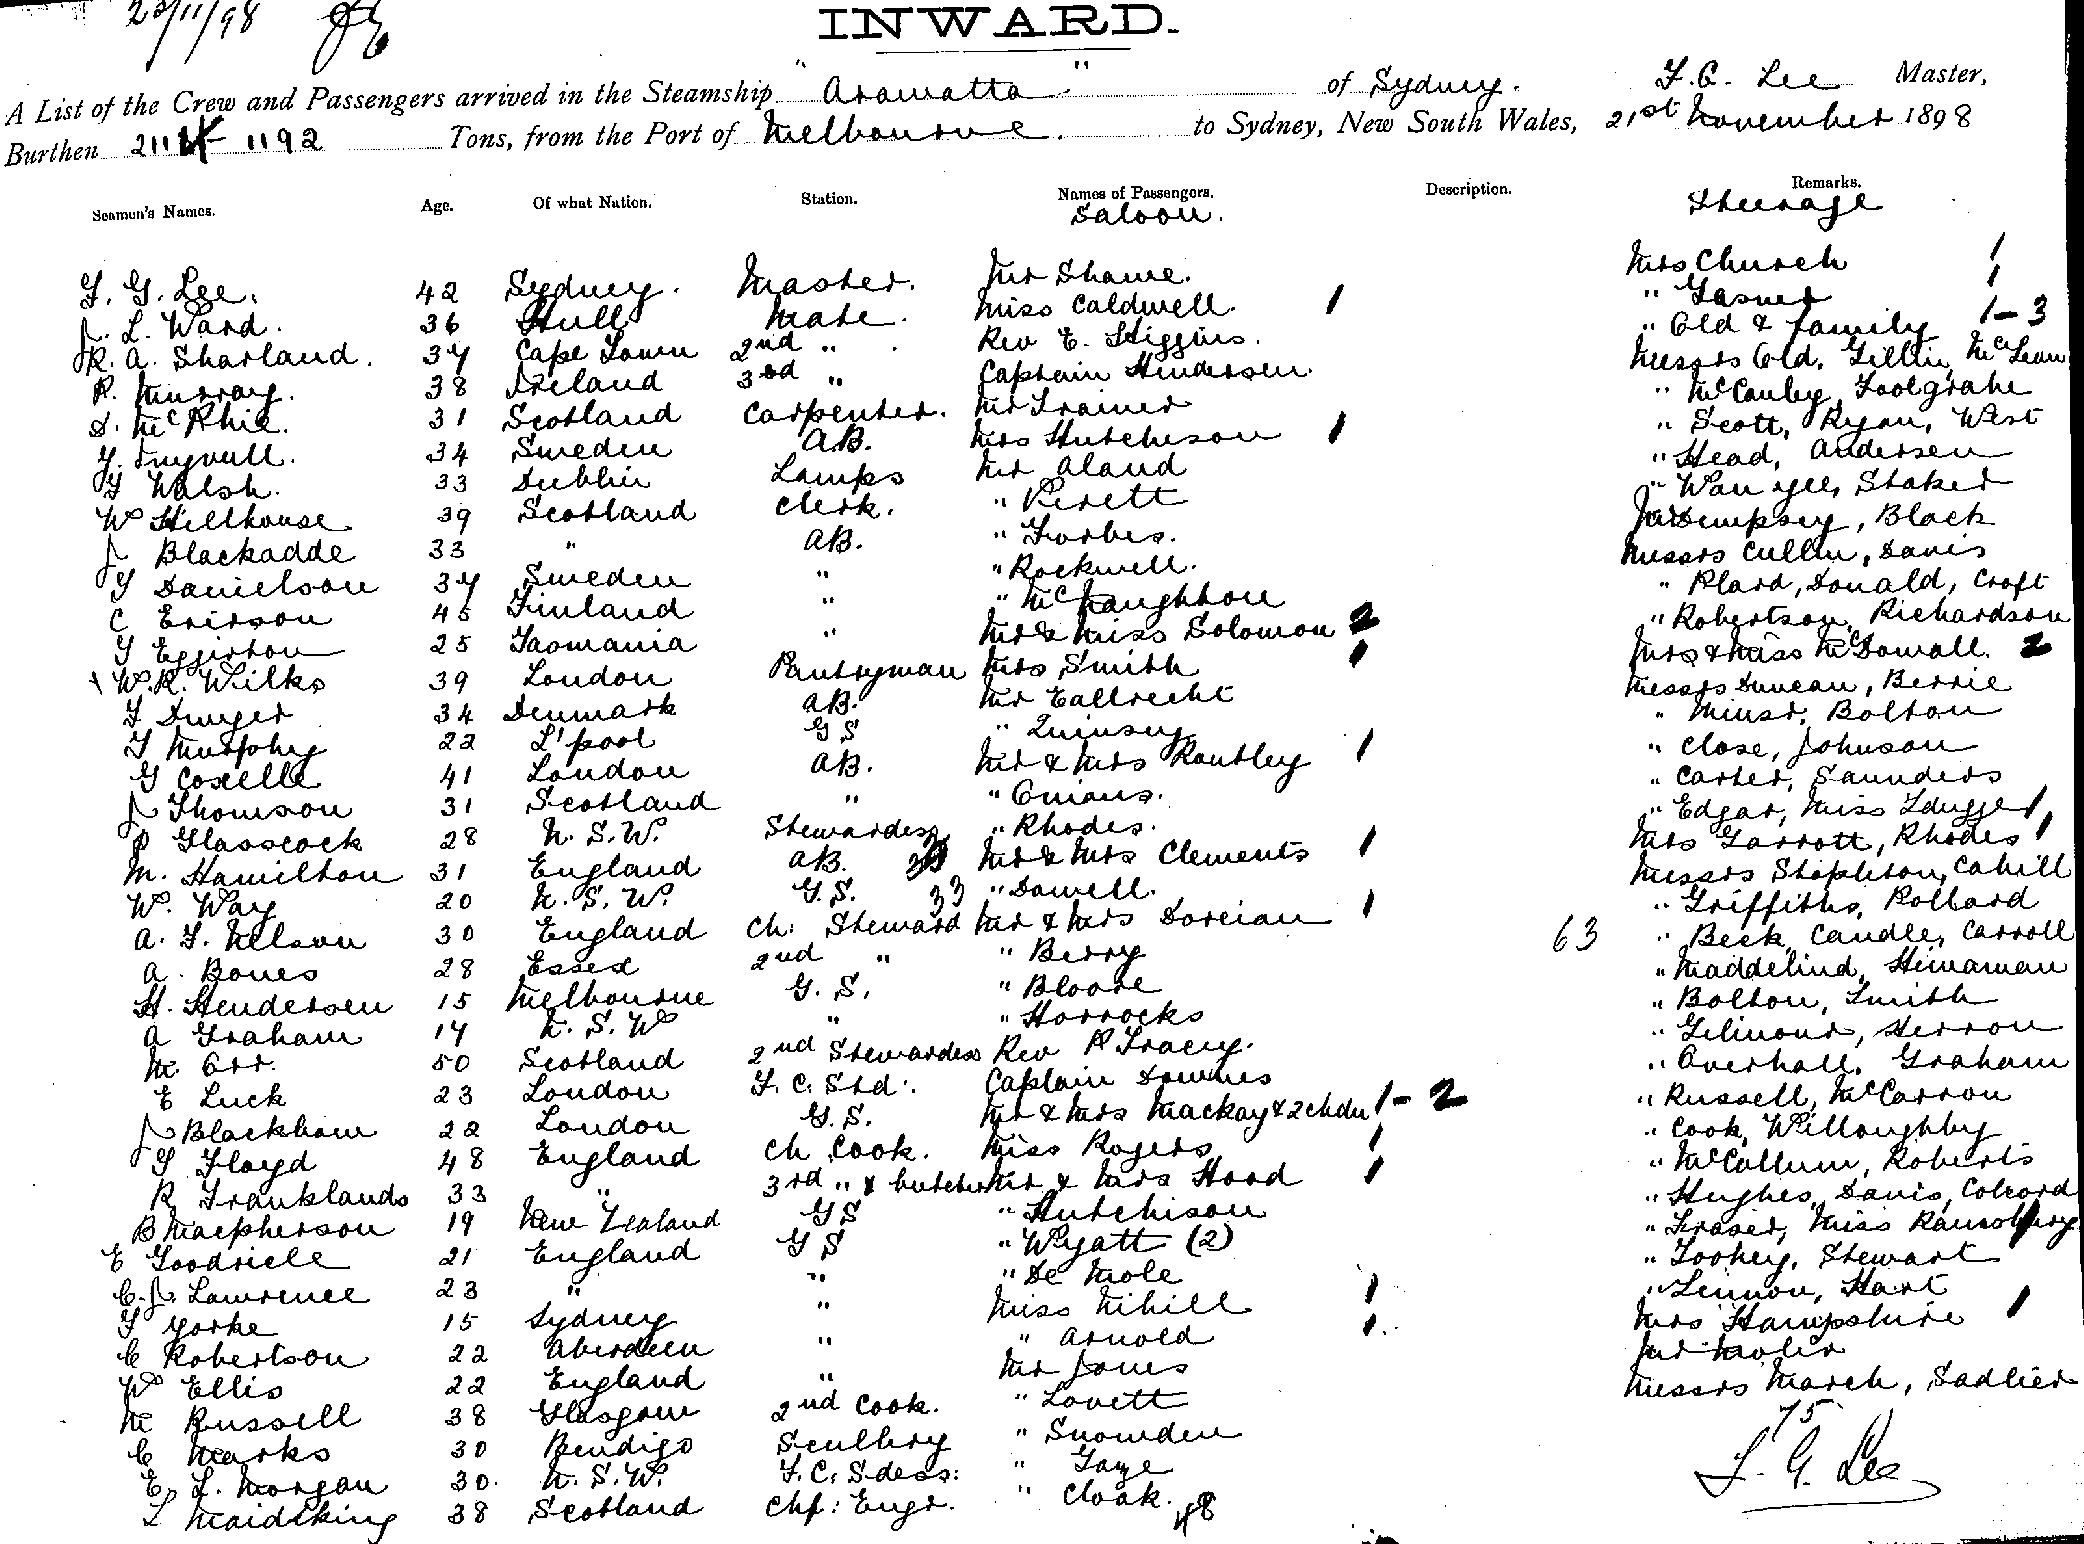 23/11/98
INWARD.
A List of the Crew and Passengers arrived in the Steamship "Aramatta" of Sydney. F. G. Lee Master,
Burthen 2114 1192 Tons, from the Port of Melbourne. to Sydney, New South Wales, 21st November 1898
Seamen's Names. Age. Of what Nation. Station. Names of Passengers. Description. Remarks.
Saloon. Steerage
F. G. Lee. 42 Sydney. Master. Mr Shame. Mrs Church 1
J. L. Ward. 36 Hull Mate. Miss Caldwell. 1 " Gasner 1
R. A. Sharland. 37 Cape Town 2nd " . Rev E. Higgins. " Old & family 1-3
R. Murray. 38 Ireland 3rd " Captain Hendersen. Messrs Old, Gillin, McLean
D. McPhie. 31 Scotland Carpenter. Mr Trainer " McCauley, Foolgrahe
34 Sweden AB. Mrs Hutchison 1 " Scott, Ryan, West
T Walsh. 33 Dublin Lamps Mr Aland " Head, Andersen
W Hillhouse 39 Scotland Clerk. " Verett " Wan Yee, Staker
J Blackadde 33 " AB. " Forbes. Mr Dempsey, Black
T Danielson 37 Sweden " " Rockwell. Messrs Cullin, Davis
C Ericson 45 Finland " " McNaughton " Plard, Donald, Croft
T Eggirton 25 Tasmania " Mr & Miss Solomon 2 " Robertson, Richardson
W. R. Wilks 39 London Pantryman Mrs Smith 1 Mrs & Miss McDowall. 2
T Dwyer 34 Denmark AB. Mr Eallrecht Messrs Duncan, Berrie
T Murphy 22 L'pool GS " Quinsey " Minsr, Bolton
G Coxelle 41 London AB. Mr & Mrs Rantley 1 " Close, Johnson
J Thomson 31 Scotland " " Onians. " Carter, Saunders
P Glasscock 28 N. S. W. Stewardess " Rhodes. " Edgar, Miss 1
M. Hamilton 31 England AB. Mr & Mrs Clements 1 Mrs Garrott, Rhodes 1
W. Way 20 N. S. W. G. S. 33 " Dowell. Messrs Stapleton, Cahill
A. F. Nelson 30 England Ch: Steward Mr & Mrs Doreian 1 " Griffiths, Pollard
A. Bones 28 Essex 2nd " " Berry 63 " Beck, Candle, Carroll
H. Hendersen 15 Melbourne G. S. " Bloore " Maddelind, Hinaman
A Graham 17 N. S. W " " Horrocks " Bolton, Smith
M. Orr. 50 Scotland 2nd Stewardess Rev P Tracey. " Gilmour, Herron
E Luck 23 London F. C. Std: Captain Downes " Overhall, Graham
J Blackham 22 London G. S. Mr & Mrs Mackay & 2 chdn 1-2 " Russell, McCarron
T Floyd 48 England Ch Cook. Miss Rogers 1 " Cook, Willoughby
R Franklands 33 " 3rd " & butcher Mr & Mrs Hood 1 " McCallum, Roberts
B Macpherson 19 New Zealand GS " Hutchison " Hughes, Davis, Coleord
E Goodricle 21 England GS " Wyatt (2) " Fraser, Miss Ramsbury 1
C. J. Lawrence 23 " " " De Mole " Toohey, Stewart
T Yorke 15 Sydney " Miss Nihill 1 " Lennon, Hart
C Robertson 22 Aberdeen " " Arnold 1 Mrs Hampshire 1
W Ellis 22 England " Mr Jones Mr Moler
M Russell 38 Glasgow 2nd Cook. " Lovett Messrs March, Sadlier
C Marks 30 Bendigo Scullery " Snowden 75
E. L. Morgan 30. N. S. W. F. C. S-dess: " Gaze F. G. Lee
L Maidsking 38 Scotland Chf: Engr. " Cloak. 48